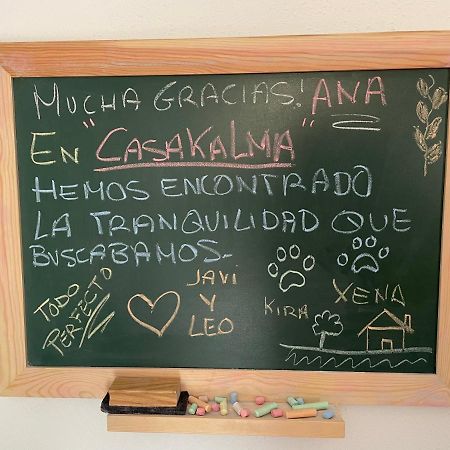 MUCHA GRACIAS! ANA
EN "CASAKALMA"
HEMOS ENCONTRADO
LA TRANQUILIDAD QUE
BUSCABAMOS-
TODO
PERFECTO
JAVI
Y
LEO
KIRA
XENA